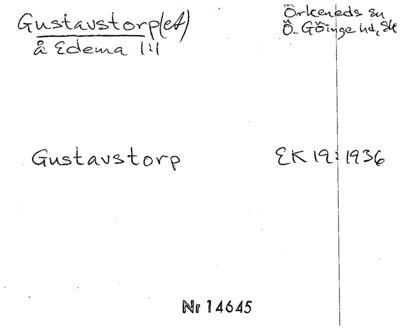 Gustavstorp(et)
å Edema 1:1
Örkeneds sn
Ö. Göinge hd, Sk
Gustavstorp EK 19: 1936
Nr 14645